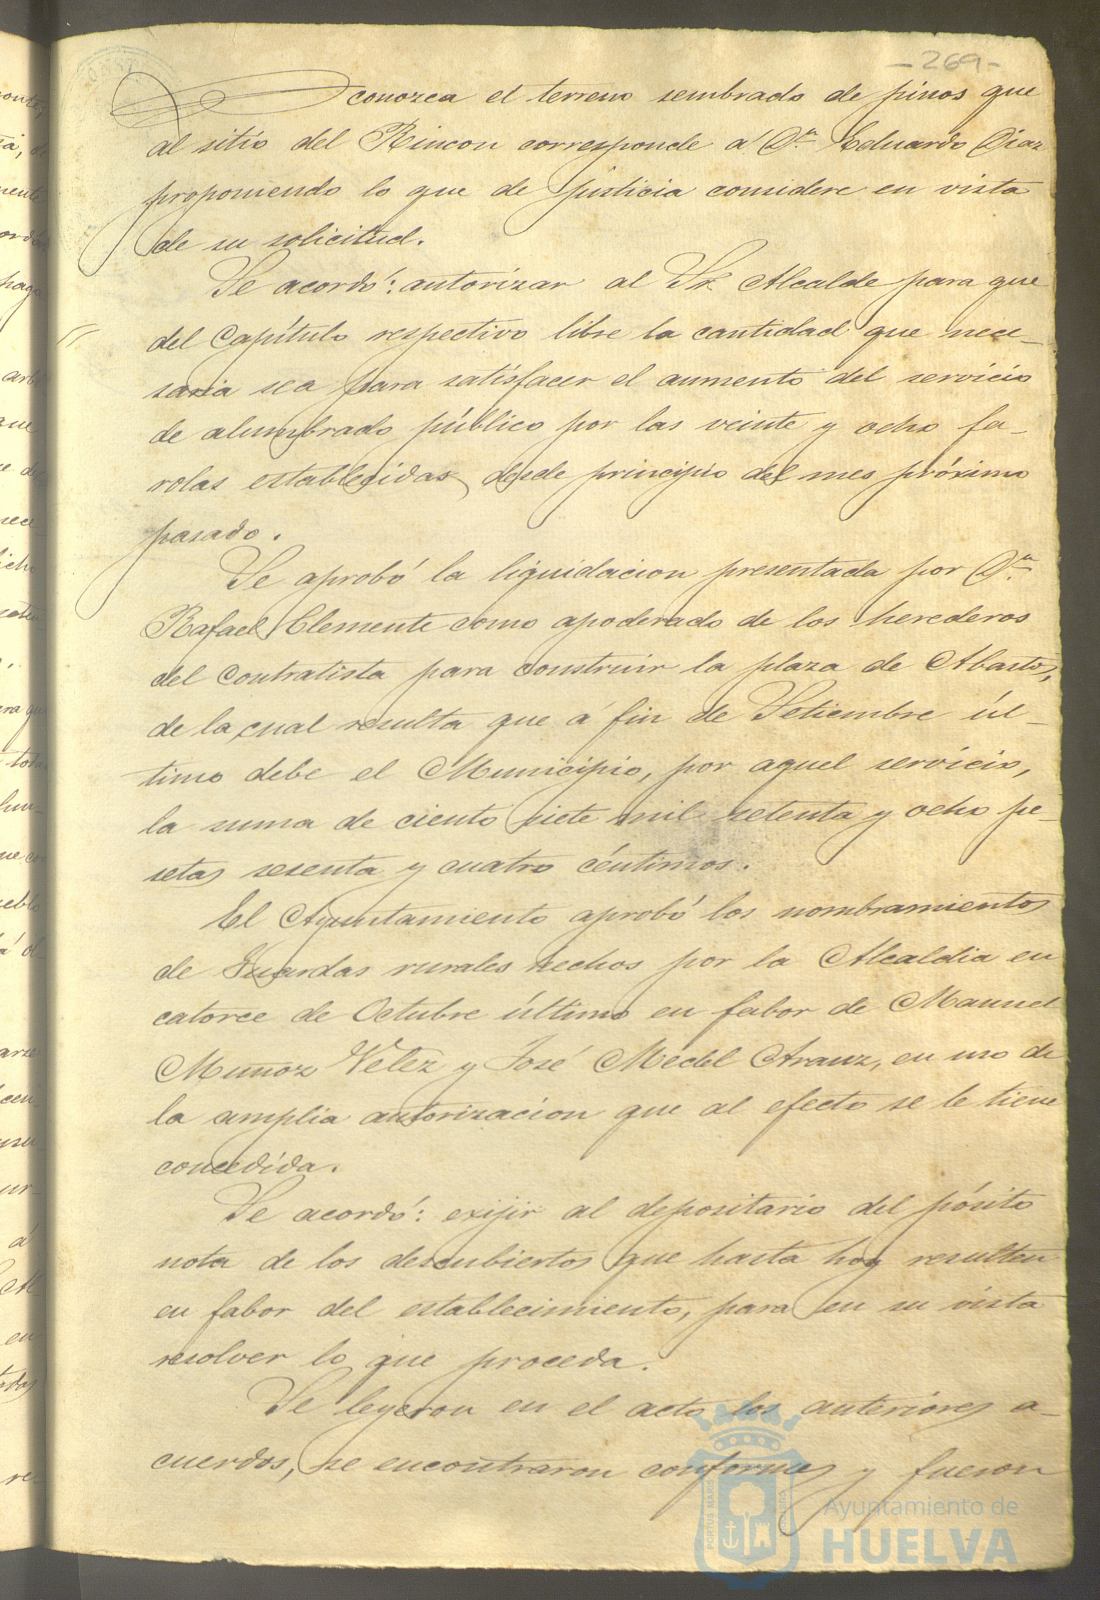 -269-
conozca el terreno sembrado de pinos que
al sitio del Rincon corresponde á Dn. Eduardo Diaz
proponiendo lo que de justicia considere en vista
de su solicitud.
Se acordó: autorizar al Sr. Alcalde para que
del Capítulo respectivo libre la cantidad que nece-
saria sea para satisfacer el aumento del servicio
de alumbrado público por las veinte y ocho fa-
rolas establecidas desde principio del mes próximo
pasado.
Se aprobó la liquidacion presentada por Dn.
Rafael Clemente como apoderado de los herederos
del Contratista para construir la plaza de Abastos,
de la cual resulta que á fin de Setiembre úl-
timo debe el Municipio, por aquel servicio,
la suma de ciento siete mil setenta y ocho pe-
setas sesenta y cuatro céntimos.
El Ayuntamiento aprobó los nombramientos
de Guardas rurales hechos por la Alcaldia en
catorce de Octubre último en fabor de Manuel
Muñoz Velez y José Medel Arauz, en uso de
la amplia autorizacion que al efecto se le tiene
concedida.
Se acordó: exijir al depositario del pósito
nota de los descubiertos que hasta hoy resulten
en fabor del establecimiento, para en su vista
resolver lo que proceda.
Se leyeron en el acto los anteriores a-
cuerdos, se encontraron conformes y fueron
Ayuntamiento de
HUELVA